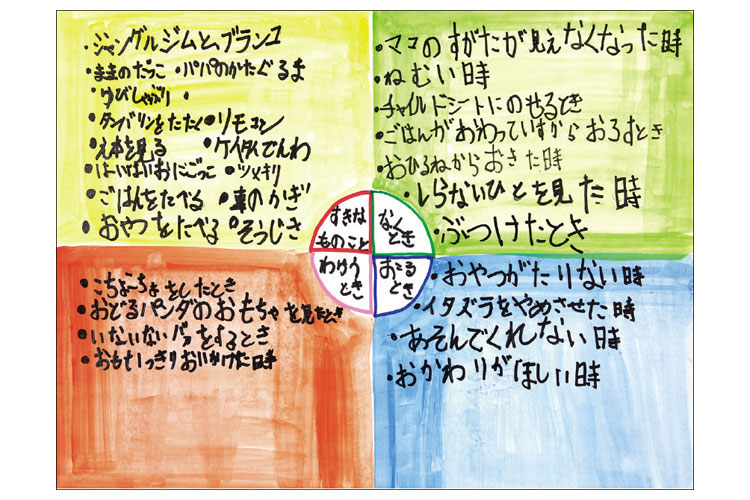 ・ジャングルジムと、ブランコ
・ままのだっこ ・パパのかたぐるま
・ゆびしゃぶり ・
・タンバリンをたたく ・リモコン
・え本を見る ・ケイタイでんわ
・はいはいおにごっこ ・ツメキリ
・ごはんをたべる ・車のかぎ
・おやつをたべる ・そうじき
すきな
ものこと
・ママのすがたが見えなくなった時
・ねむい時
・チャイルドシートにのせるとき
・ごはんがおわっていすからおろすとき
・おひるねからおきた時
・しらないひとを見た時
・ぶつけたとき
なく
とき
わらう
とき
・こちょこちょをしたとき
・おどるパンダのおもちゃを見たとき
・いないないバァをするとき
・おもいっきりおいかけた時
おこる
とき
・おやつがたりない時
・イタズラをやめさせた時
・あそんでくれない時
・おかわりがほしい時